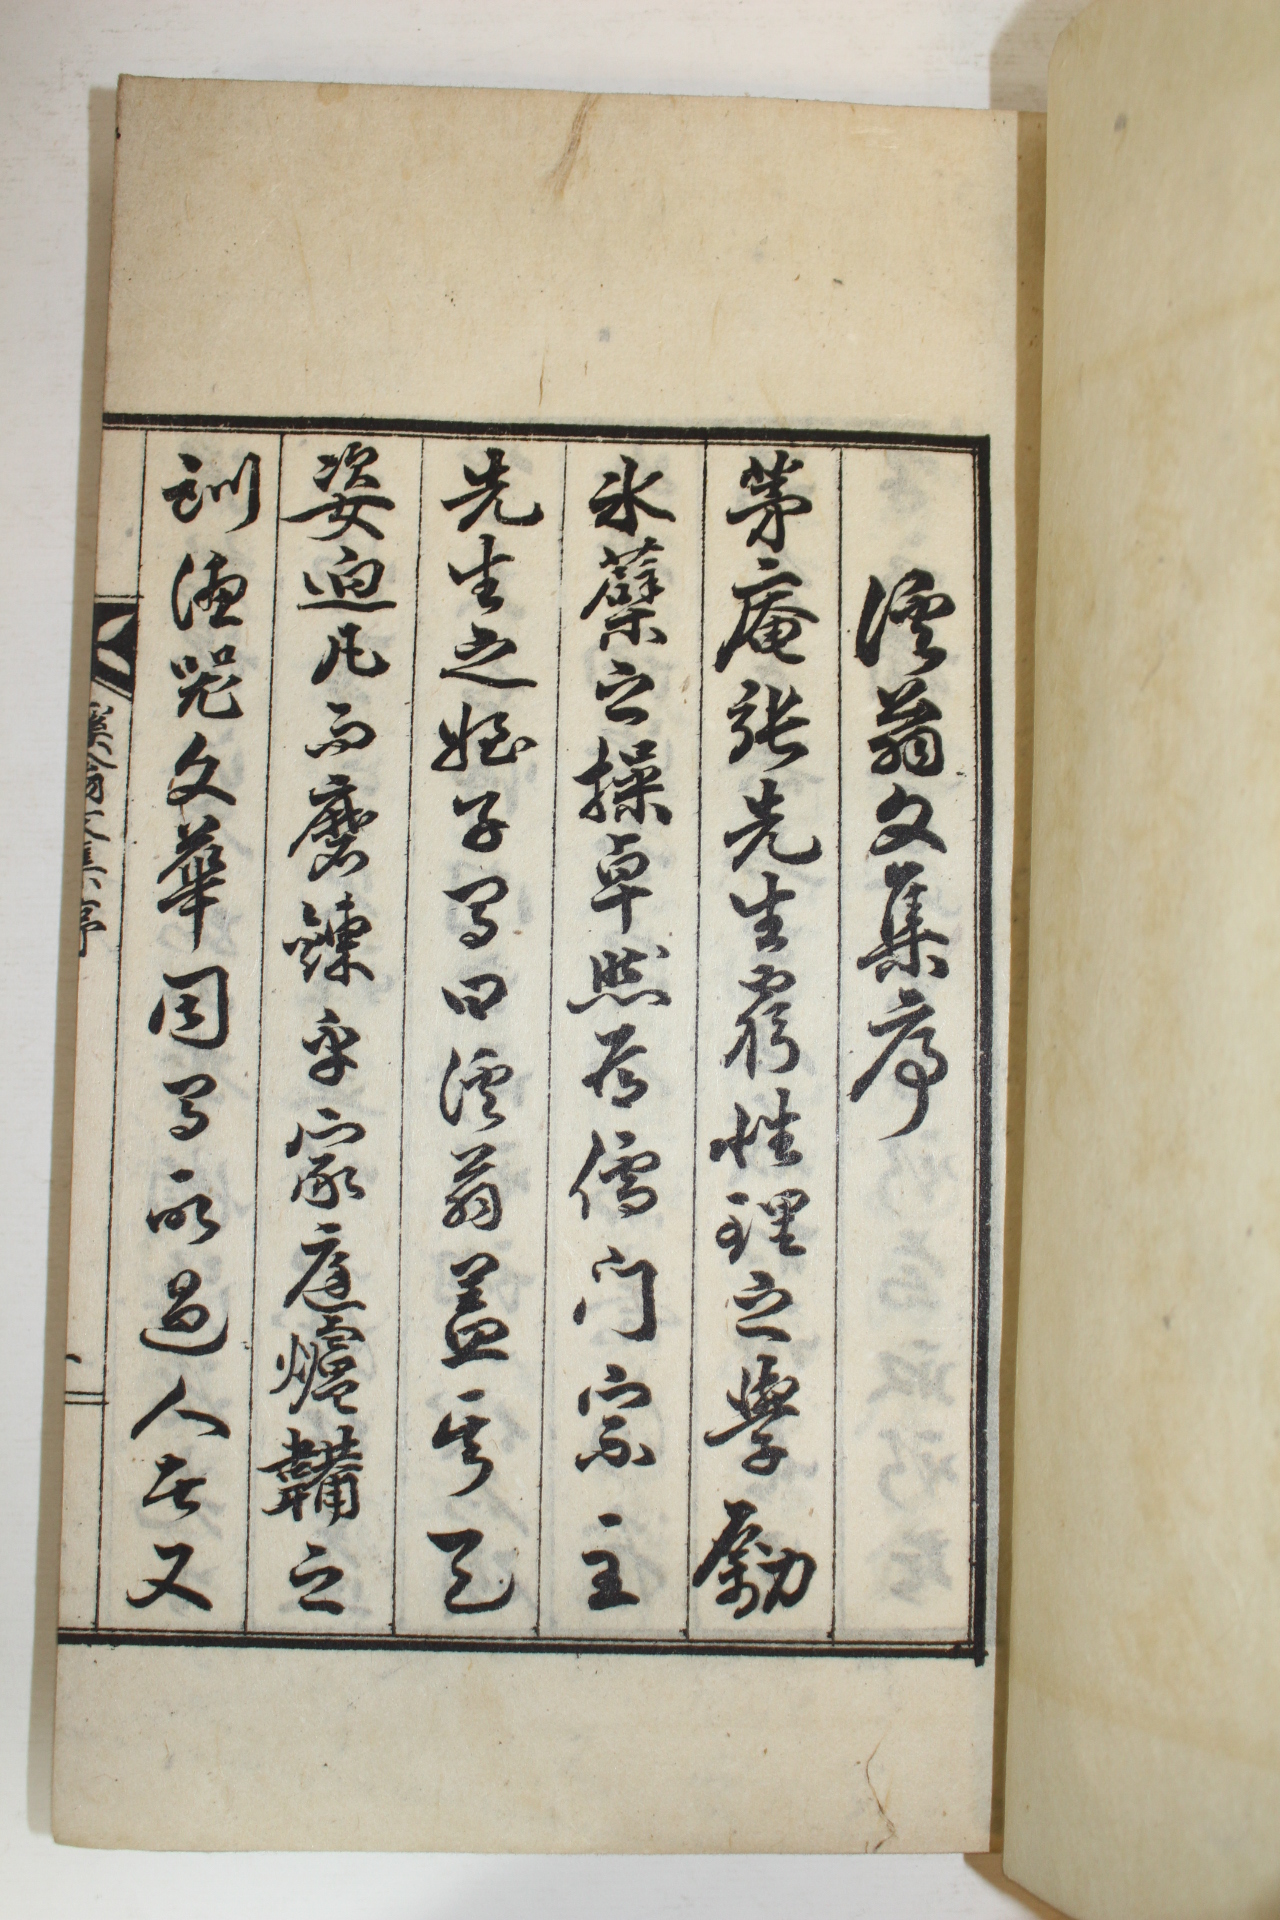 溪翁文集序
茅庵張先生窮性理之學勵
氷蘗之操卓然爲儒門宗主
先生之姪子有曰溪翁蓋其天
姿迥凡而磨鍊乎家庭爐韛之
訓德器文華固有所過人者又
溪翁文集序
一